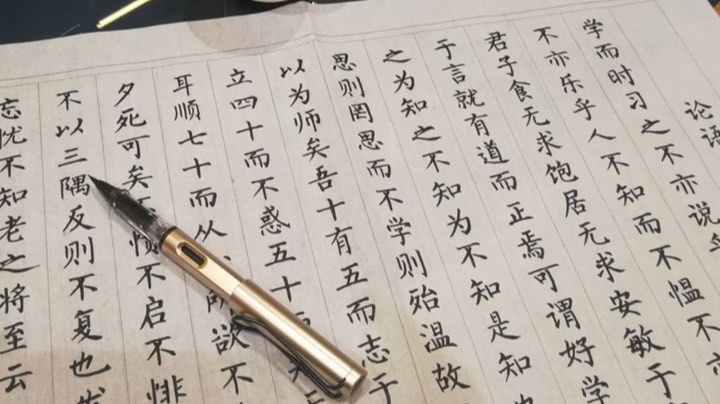 论语
学而时习之不亦说乎
不亦乐乎人不知而不愠不亦
君子食无求饱居无求安敏于
于言就有道而正焉可谓好学
之为知之不知为不知是知也
思则罔思而不学则殆温故
以为师矣吾十有五而志于
立四十而不惑五十
耳顺七十而从心所欲不
夕死可矣不愤不启不悱
不以三隅反则不复也发
忘忧不知老之将至云